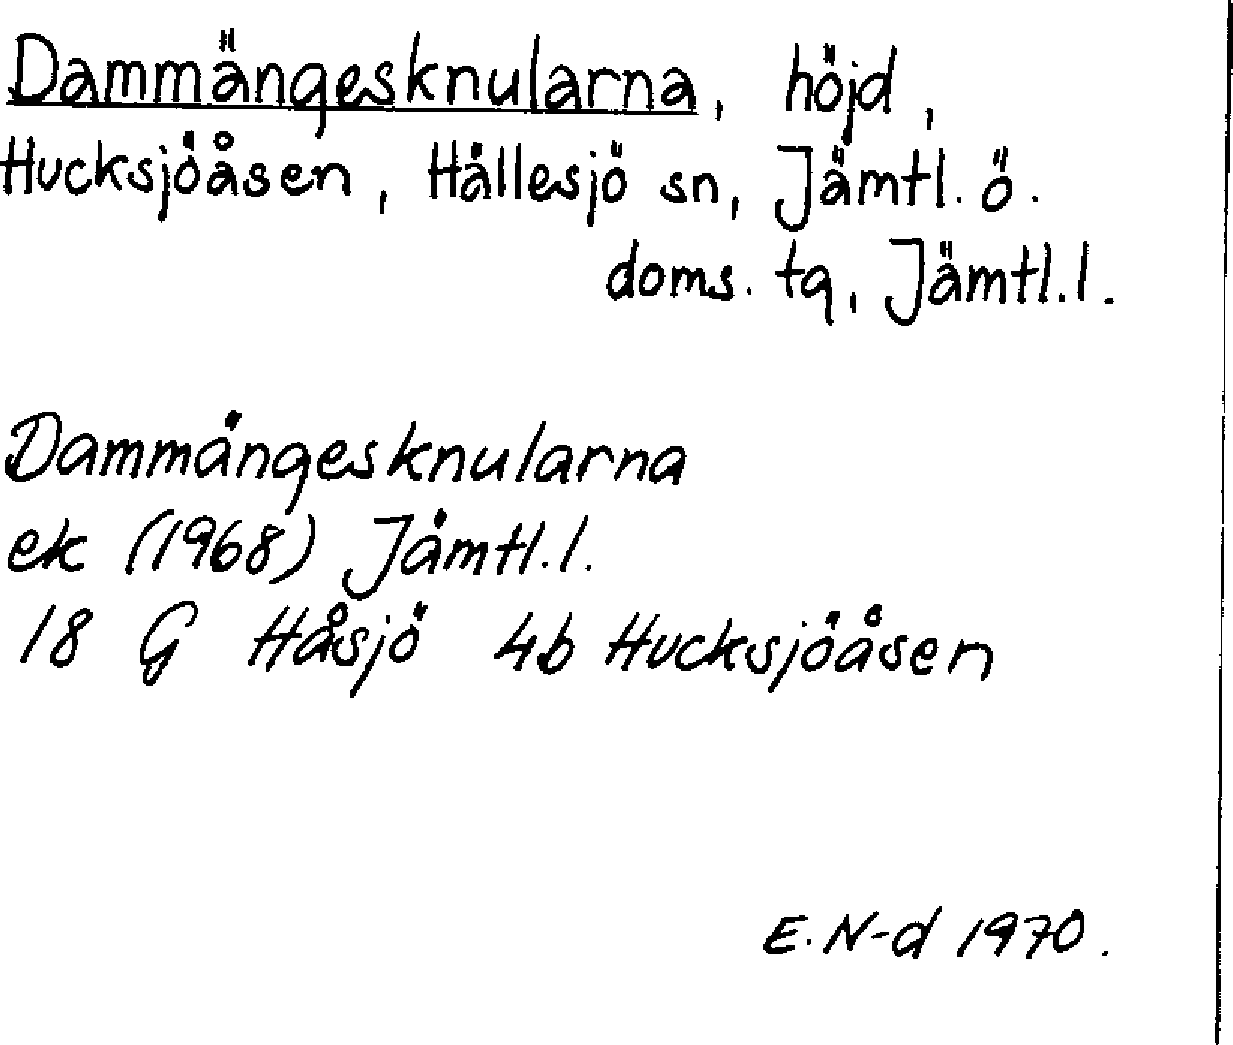 Dammängesknularna, höjd,
Hucksjöåsen, Hällesjö sn, Jämtl. ö.
doms. tg, Jämtl. l.
Dammängesknularna
ek (1968) Jämtl. l.
18 G Håsjö 4b Hucksjöåsen
E. N-d 1970.